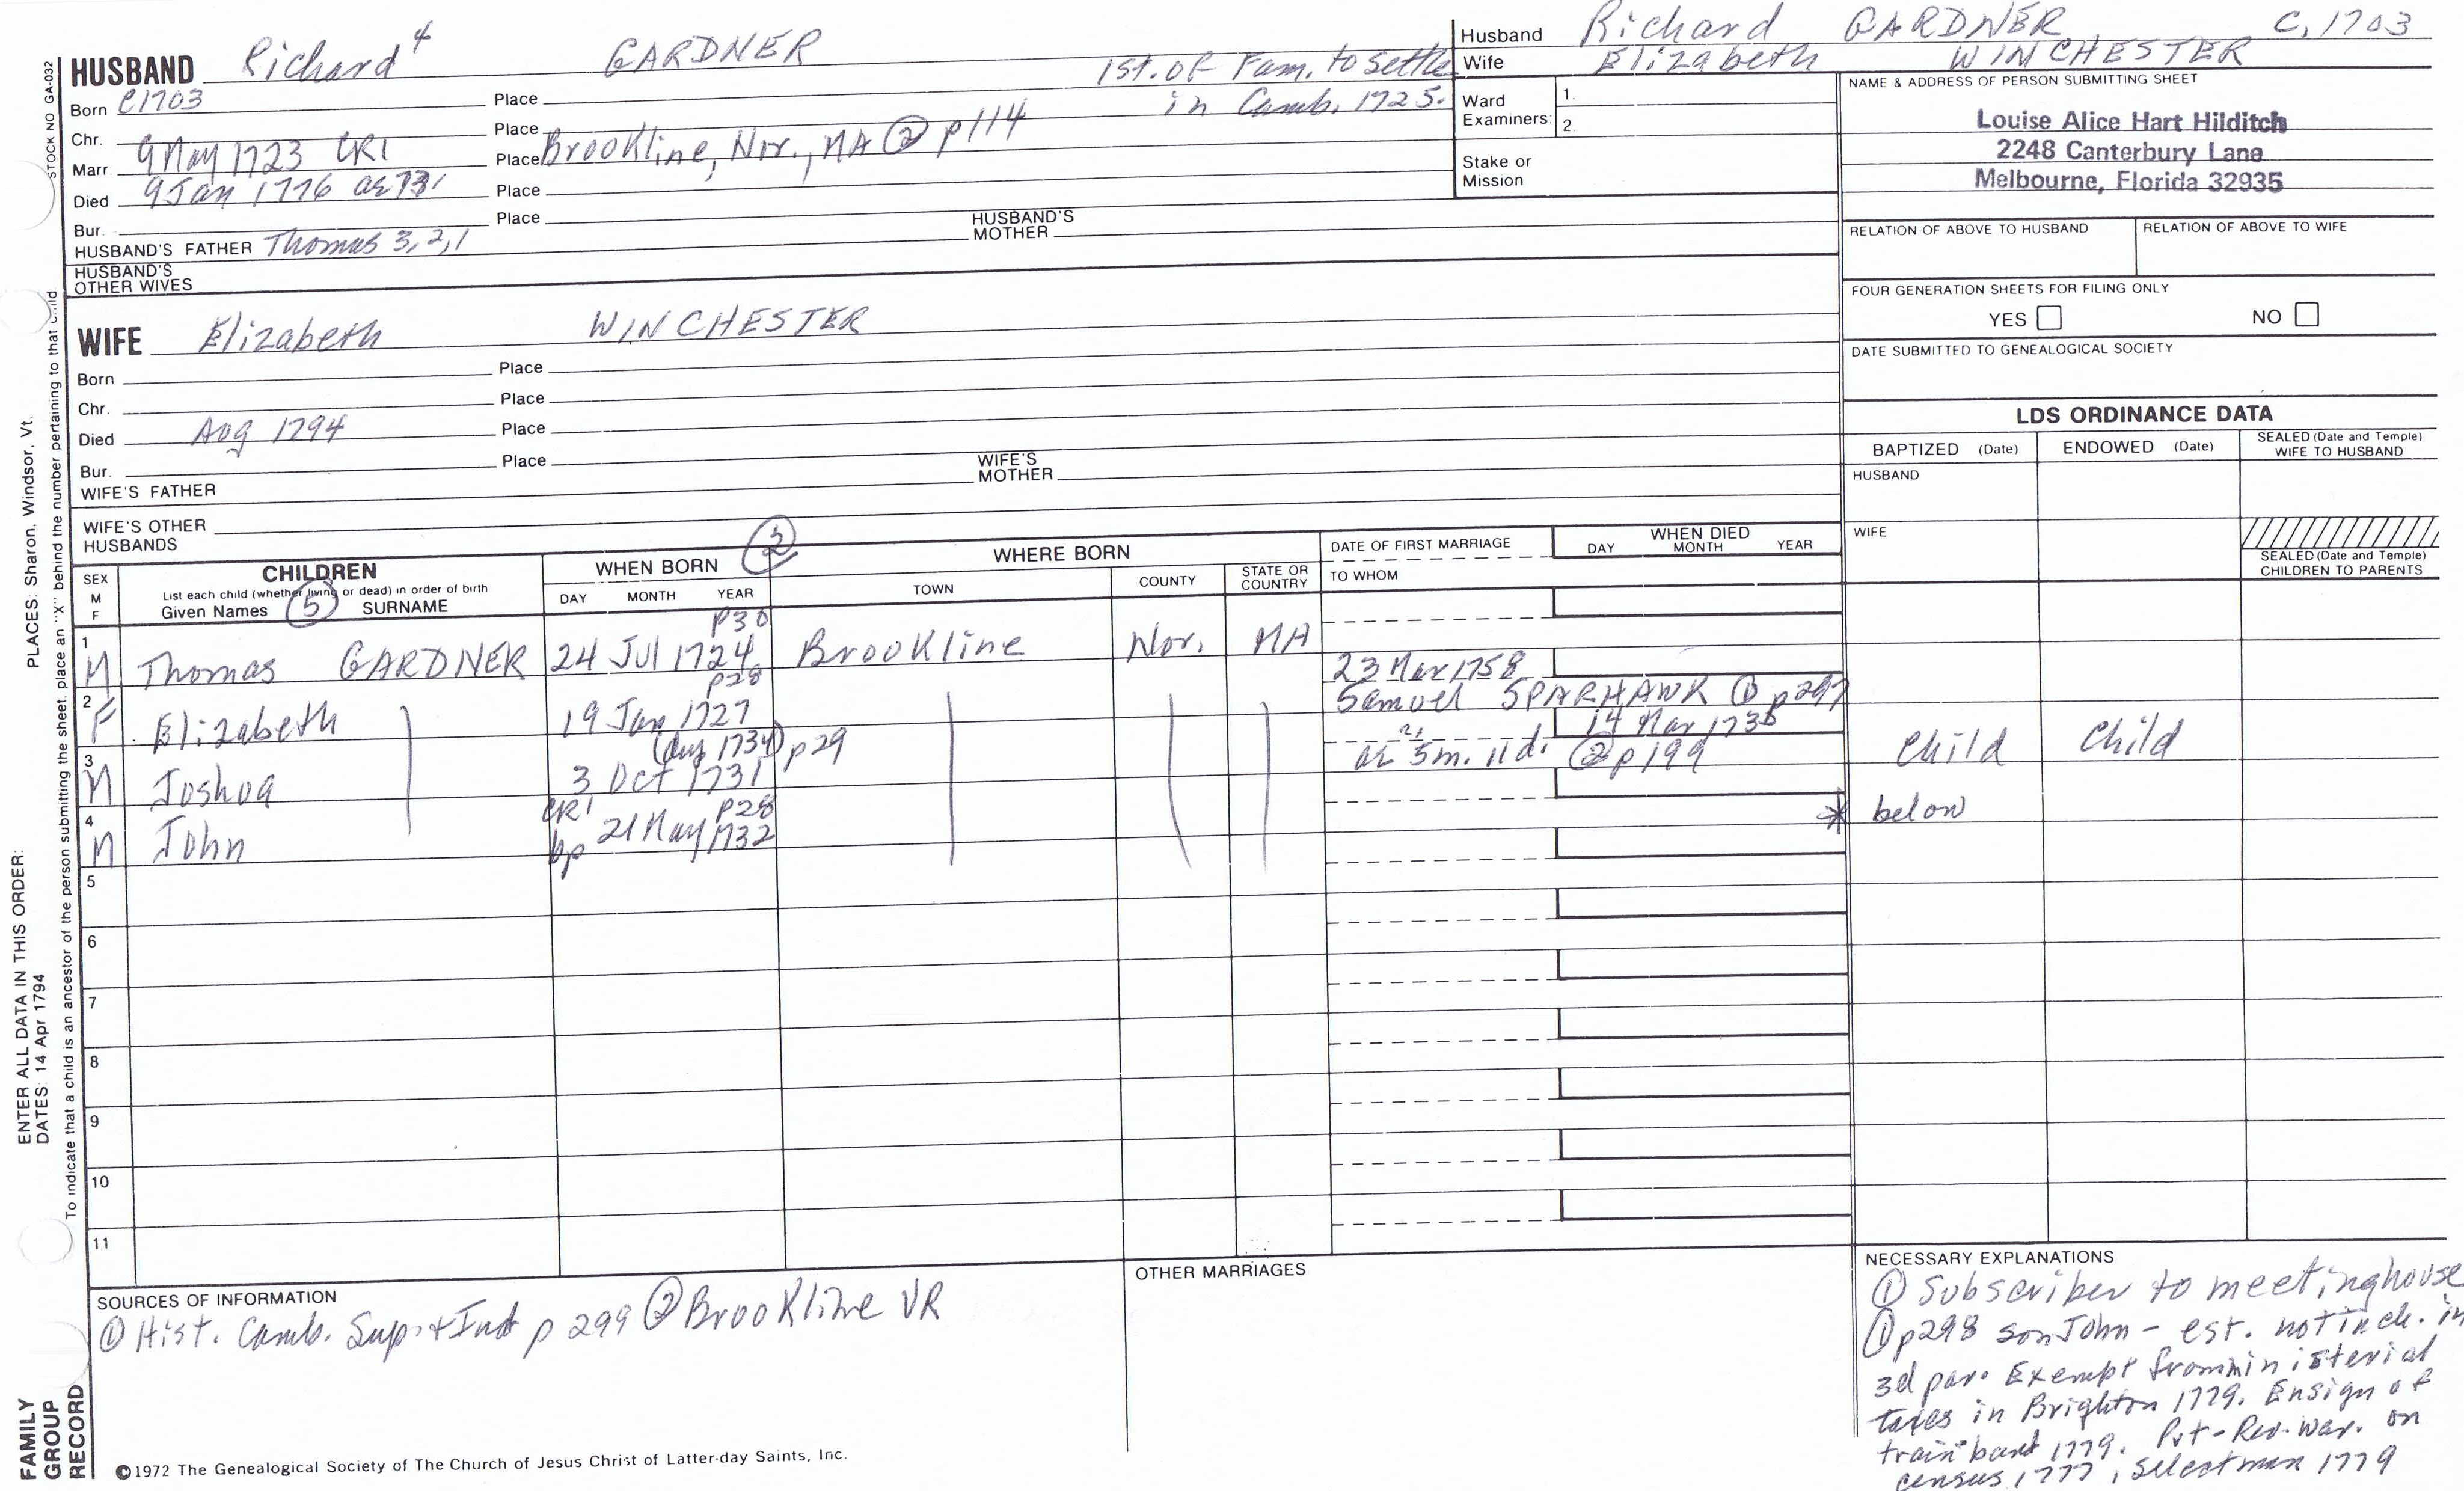 STOCK NO GA-032
HUSBAND Richard 4 GARDNER 1st. of Fam. to Settle
Born C1703 Place in Camb. 1725.
Chr. Place
Marr. 9 May 1723 CR1 Place Brookline, Nor., MA ② p114
Died 9 Jan 1776 ae 73 Place
Bur. Place
HUSBAND'S FATHER Thomas 3,2,1 HUSBAND'S MOTHER
HUSBAND'S OTHER WIVES
WIFE Elizabeth WINCHESTER
Born Place
Chr. Place
Died Aug 1794 Place
Bur. Place
WIFE'S FATHER WIFE'S MOTHER
WIFE'S OTHER HUSBANDS
Husband Richard GARDNER C. 1703
Wife Elizabeth WINCHESTER
Ward Examiners: 1.
2.
Stake or Mission
NAME & ADDRESS OF PERSON SUBMITTING SHEET
Louise Alice Hart Hilditch
2248 Canterbury Lane
Melbourne, Florida 32935
RELATION OF ABOVE TO HUSBAND RELATION OF ABOVE TO WIFE
FOUR GENERATION SHEETS FOR FILING ONLY
YES NO
DATE SUBMITTED TO GENEALOGICAL SOCIETY
LDS ORDINANCE DATA
BAPTIZED (Date) ENDOWED (Date) SEALED (Date and Temple) WIFE TO HUSBAND
HUSBAND
WIFE
SEALED (Date and Temple) CHILDREN TO PARENTS
SEX M F
CHILDREN
List each child (whether living or dead) in order of birth
Given Names ⑤ SURNAME
WHEN BORN ②
DAY MONTH YEAR
WHERE BORN
TOWN COUNTY STATE OR COUNTRY
DATE OF FIRST MARRIAGE
TO WHOM
WHEN DIED
DAY MONTH YEAR
p30
1 M Thomas GARDNER 24 Jul 1724 Brookline Nor. MA
p28 23 Mar 1758
2 F Elizabeth 19 Jan 1727 Samuel SPARHAWK ① p297
(Aug 1734) p29 14 Mar 1735
3 M Joshua 3 Oct 1731 ae 5m. 11d. ② p199 Child Child
CR1 p28
4 M John bp 21 May 1732 * below
5
6
7
8
9
10
11
SOURCES OF INFORMATION
① Hist. Camb. Sup. + Ind p 299 ② Brookline VR
OTHER MARRIAGES
NECESSARY EXPLANATIONS
① Subscriber to meetinghouse
① p298 son John - est. not incl. in
3d par. Exempt from ministerial
taxes in Brighton 1779. Ensign of
train band 1779. Pvt - Rev. War. on
census 1777, Selectman 1779
©1972 The Genealogical Society of The Church of Jesus Christ of Latter-day Saints, Inc.
FAMILY
GROUP
RECORD
ENTER ALL DATA IN THIS ORDER:
DATES: 14 Apr 1794
PLACES: Sharon, Windsor, Vt.
To indicate that a child is an ancestor of the person submitting the sheet, place an "X" behind the number pertaining to that child